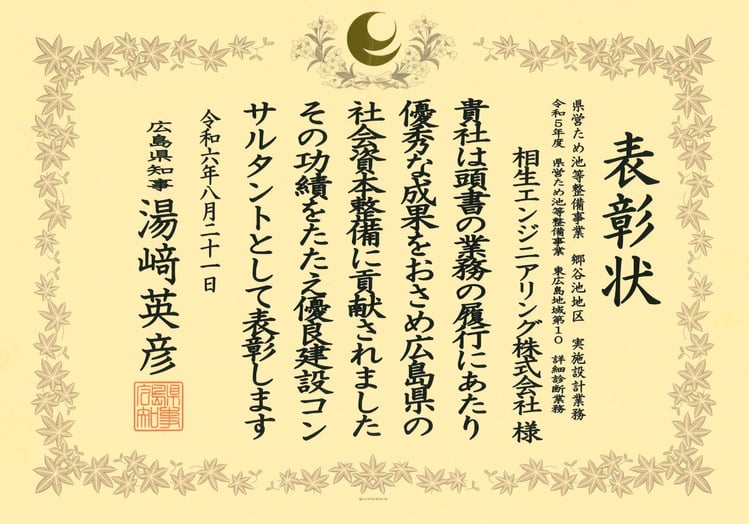 表彰状
県営ため池等整備事業 郷谷池地区 実施設計業務
令和5年度 県営ため池等整備事業 東広島地域第10 詳細診断業務
相生エンジニアリング株式会社 様
貴社は頭書の業務の履行にあたり
優秀な成果をおさめ広島県の
社会資本整備に貢献されました
その功績をたたえ優良建設コン
サルタントとして表彰します
令和六年八月二十一日
広島県知事 湯﨑英彦